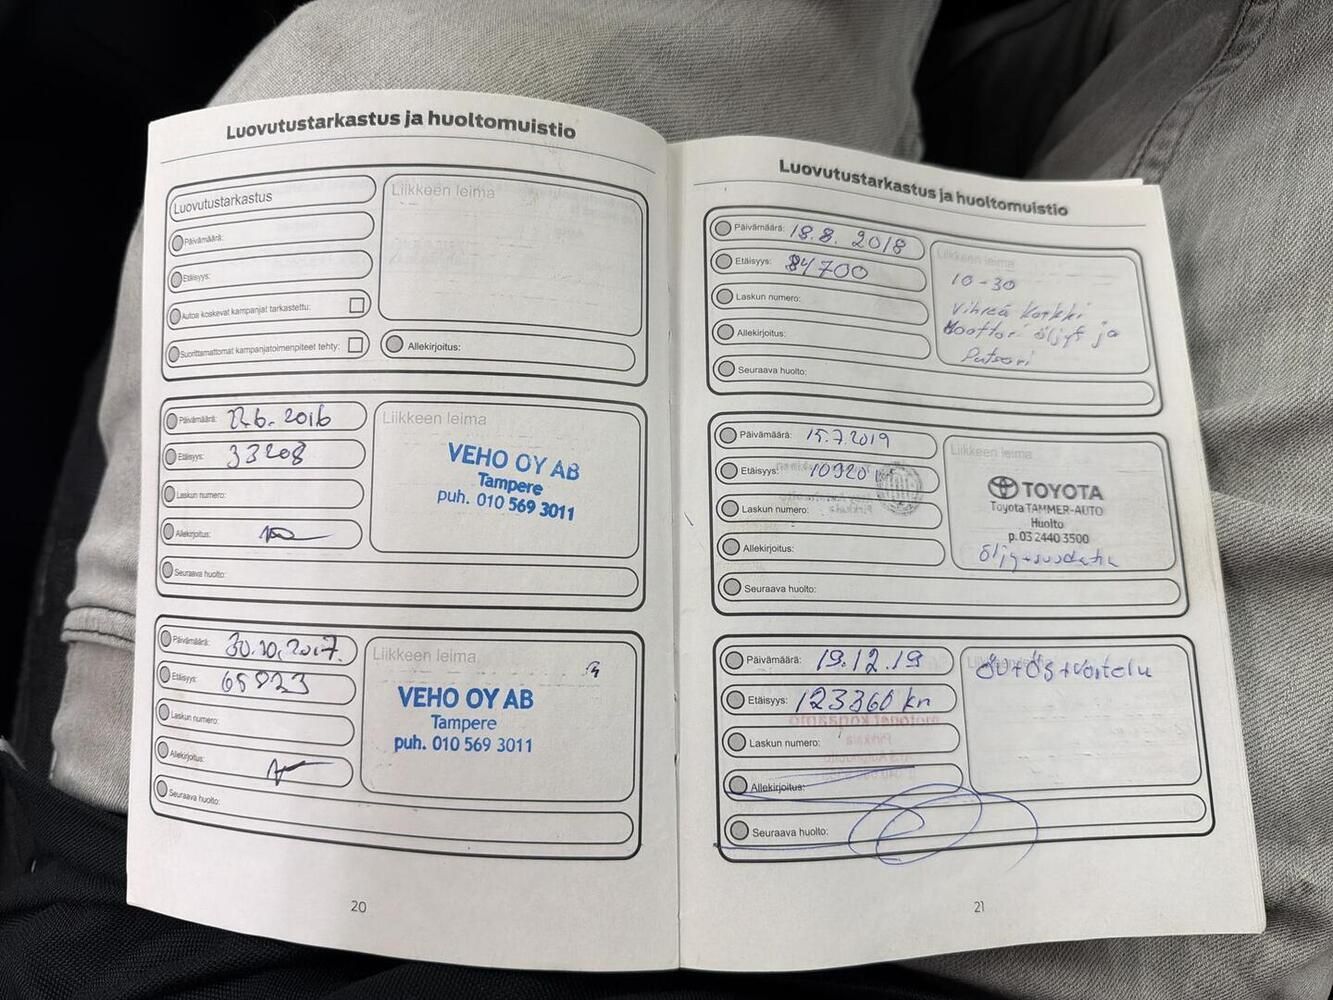 Luovutustarkastus ja huoltomuistio
Luovutustarkastus
Päivämäärä:
Etäisyys:
Autoa koskevat kampanjat tarkastettu:
Suorittamattomat kampanjatoimenpiteet tehty:
Liikkeen leima
Allekirjoitus:
Päivämäärä: 22.6.2016
Etäisyys: 33208
Laskun numero:
Allekirjoitus:
Seuraava huolto:
Liikkeen leima
VEHO OY AB
Tampere
puh. 010 569 3011
Päivämäärä: 30.10.2017.
Etäisyys: 65823
Laskun numero:
Allekirjoitus:
Seuraava huolto:
Liikkeen leima
VEHO OY AB
Tampere
puh. 010 569 3011
20
Luovutustarkastus ja huoltomuistio
Päivämäärä: 18.8.2018
Etäisyys: 84700
Laskun numero:
Allekirjoitus:
Seuraava huolto:
Liikkeen leima
10-30
Vihreä korkki
Moottori öljyt ja
Putsari
Päivämäärä: 15.7.2019
Etäisyys: 109201
Laskun numero:
Allekirjoitus:
Seuraava huolto:
Liikkeen leima
TOYOTA
Toyota TAMMER-AUTO
Huolto
p. 03 2440 3500
Päivämäärä: 19.12.19
Etäisyys: 123360 km
Laskun numero:
Allekirjoitus:
Seuraava huolto:
21